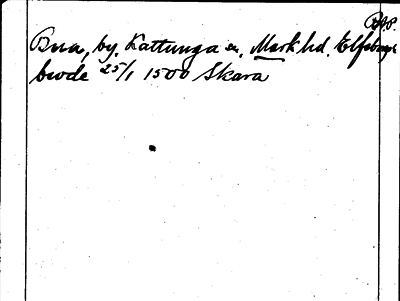 B.A.P.
Bua, by, Kattunga sn, Mark hd, Elfsborgs
brode 25/1 1500 Skara